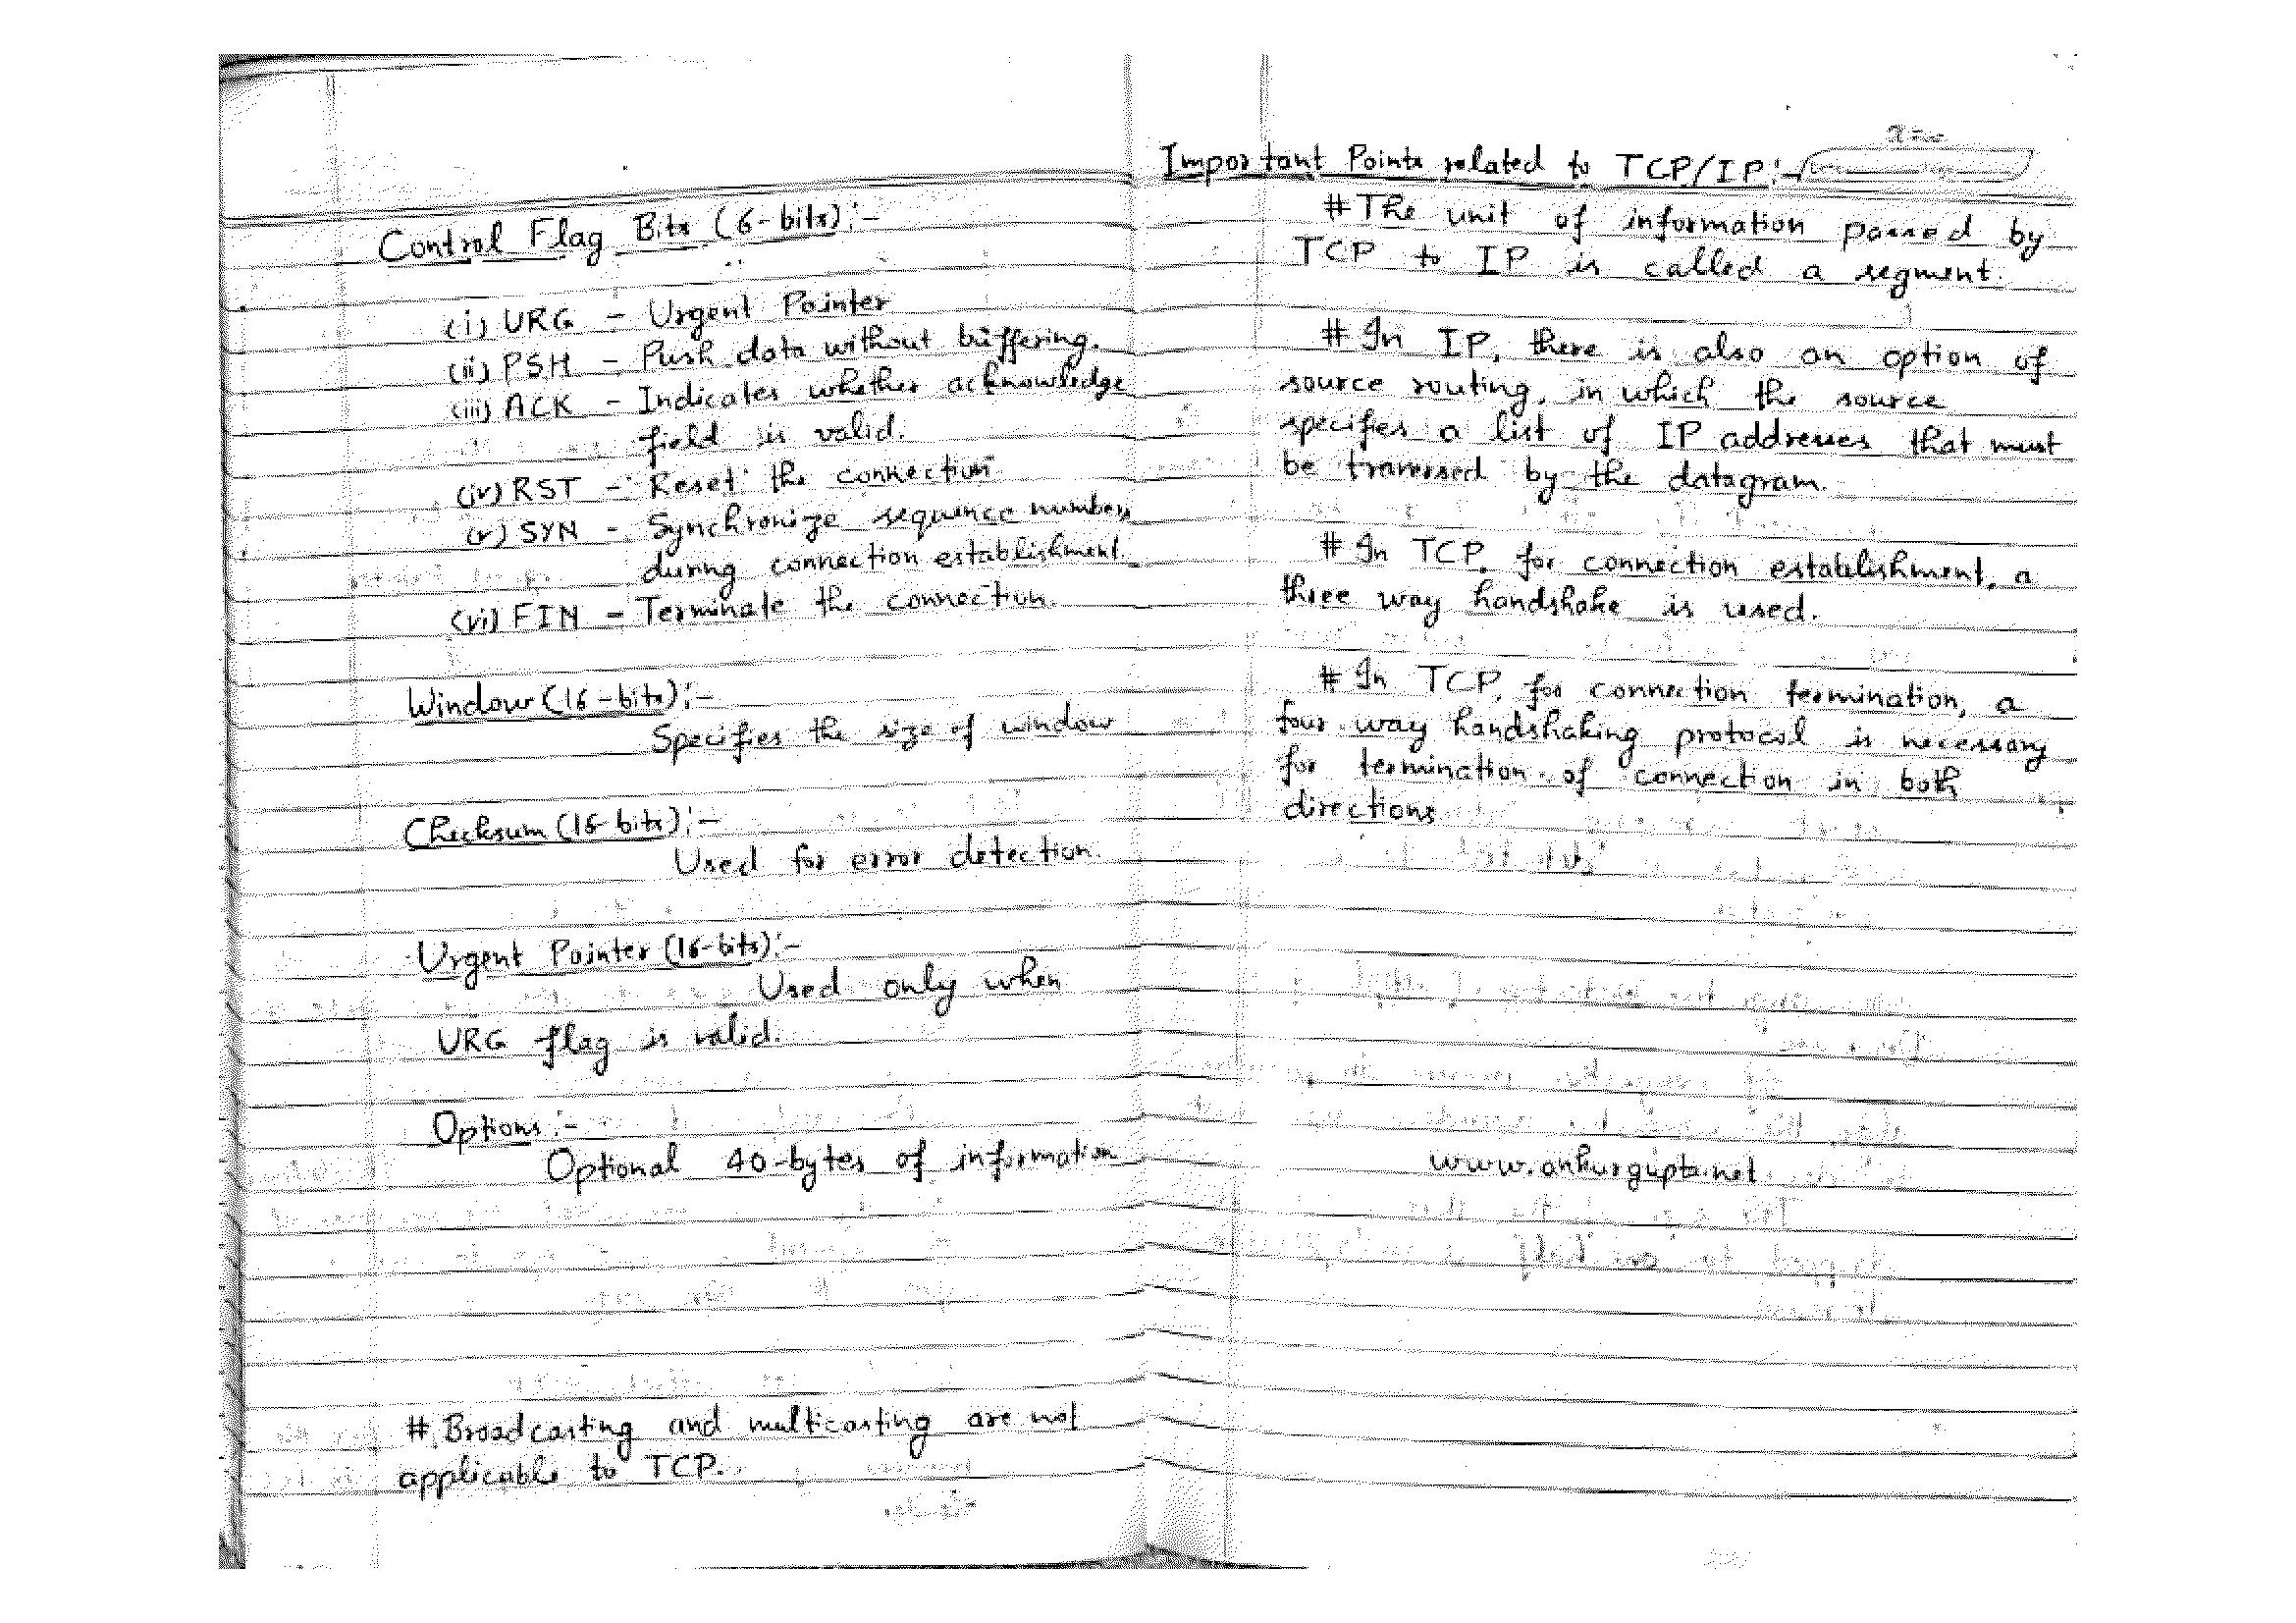 Control Flag Bits (6-bits):-
(i) URG - Urgent Pointer
(ii) PSH - Push data without buffering.
(iii) ACK - Indicates whether acknowledge
field is valid.
(iv) RST - Reset the connection
(v) SYN - Synchronize sequence numbers
during connection establishment.
(vi) FIN - Terminate the connection.
Window (16-bits):-
Specifies the size of window
Checksum (16-bits):-
Used for error detection.
Urgent Pointer (16-bits):-
Used only when
URG flag is valid.
Options:-
Optional 40-bytes of information
# Broadcasting and multicasting are not
applicable to TCP.
Important Points related to TCP/IP:-
# The unit of information passed by
TCP to IP is called a segment.
# In IP, there is also an option of
source routing, in which the source
specifies a list of IP addresses that must
be traversed by the datagram.
# In TCP, for connection establishment, a
three way handshake is used.
# In TCP, for connection termination, a
four way handshaking protocol is necessary
for termination of connection in both
directions
www.ankurgupta.net